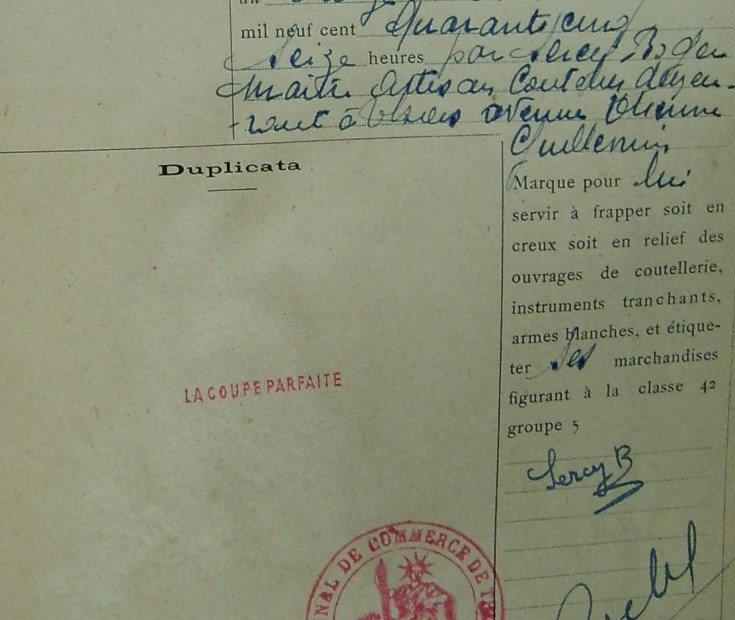 mil neuf cent Quarante cinq
Seize heures par Sercy
Maitre Artisan Coutelier demeu-
-rant à avenue Etienne
Guillemin
Duplicata
Marque pour lui
servir à frapper soit en
creux soit en relief des
ouvrages de coutellerie,
instruments tranchants,
armes blanches, et étique-
ter ses marchandises
figurant à la classe 42
groupe 5
LA COUPE PARFAITE
Sercy B
NAL DE COMMERCE DE T